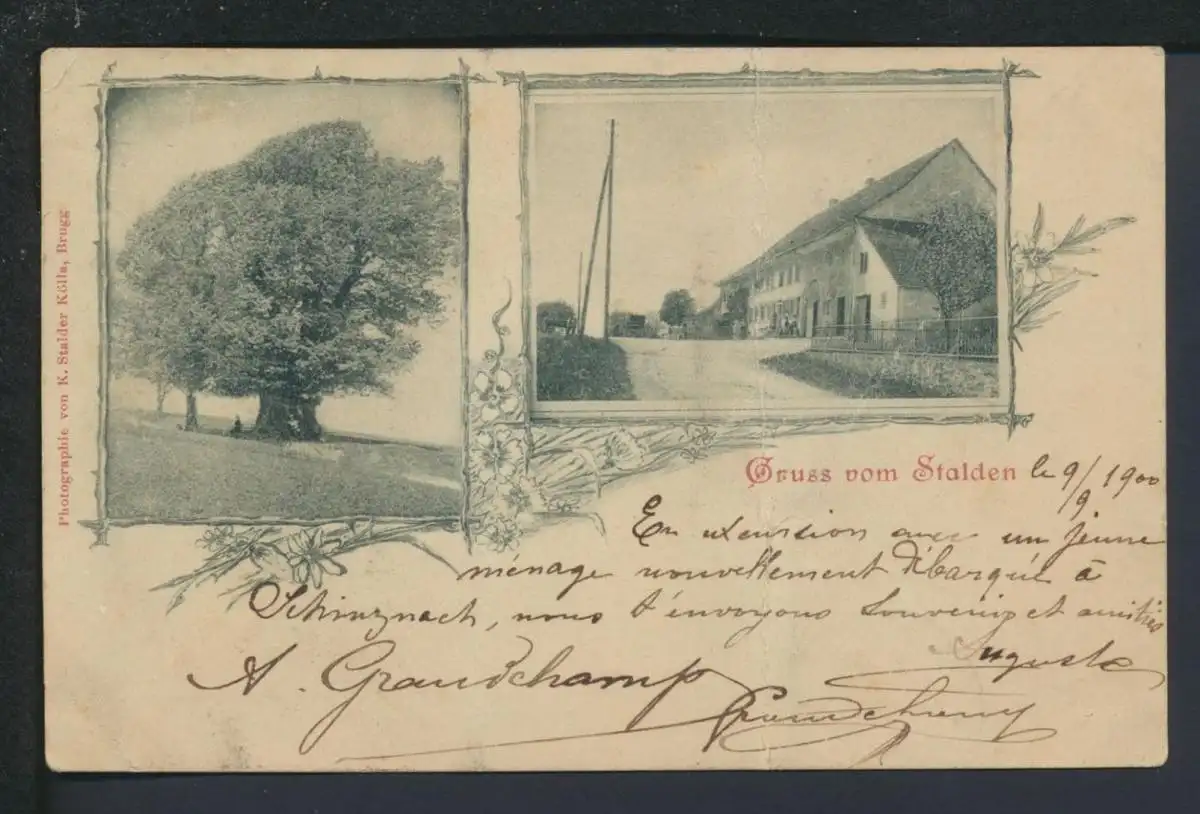 Photographie von K. Stalder Kölla, Brugg
Gruss vom Stalden le 9/9 1900
En excursion avec un jeune
ménage nouvellement débarqué à
Schinznach, nous t'envoyons souvenirs et amitiés
Auguste
A. Grandchamp